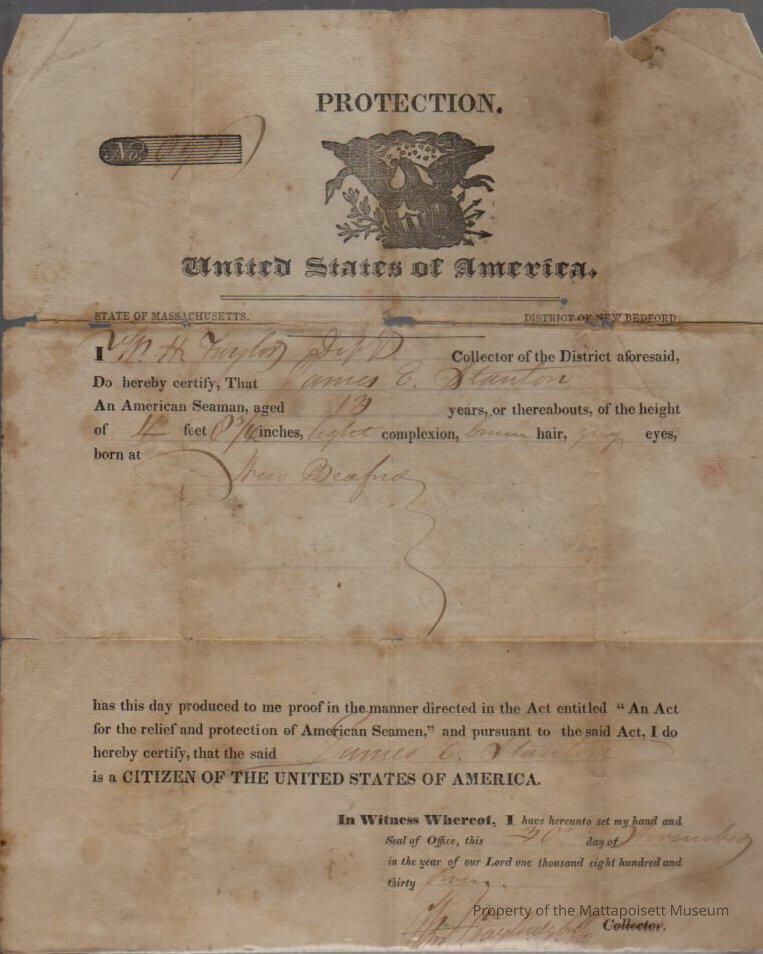 PROTECTION.
No.
United States of America.
STATE OF MASSACHUSETTS. DISTRICT OF NEW BEDFORD
I Wm H Taylor Dep Collector of the District aforesaid,
Do hereby certify, That James E. Stanton
An American Seaman, aged 13 years, or thereabouts, of the height
of 4 feet 8 3/4 inches, light complexion, brown hair, gray eyes,
born at
New Bedford
has this day produced to me proof in the manner directed in the Act entitled “An Act
for the relief and protection of American Seamen,” and pursuant to the said Act, I do
hereby certify, that the said James E. Stanton
is a CITIZEN OF THE UNITED STATES OF AMERICA.
In Witness Whereof, I have hereunto set my hand and
Seal of Office, this 30 day of November
in the year of our Lord one thousand eight hundred and
thirty
Property of the Mattapoisett Museum
Collector.